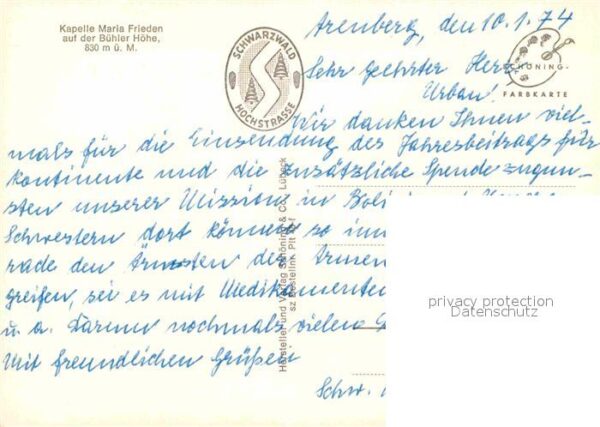 Kapelle Maria Frieden
auf der Bühler Höhe,
830 m ü. M.
SCHWARZWALD
HOCHSTRASSE
Arenberg, den 10.1.74
SCHÖNING-
FARBKARTE
Sehr geehrter Herr
Urban!
Wir danken Ihnen viel-
mals für die Einsendung des Jahresbeitrags für
kontinente und die zusätzliche Spende zugun-
sten unserer Mission in
Schwestern dort können so
rade den Ärmsten der Armen
greifen, sei es mit Medikamenten
u. a. Darum nochmals vielen
Mit freundlichen Grüßen
Schw.
Hersteller und Verlag Schöning & Co., Lübeck
privacy protection
Datenschutz